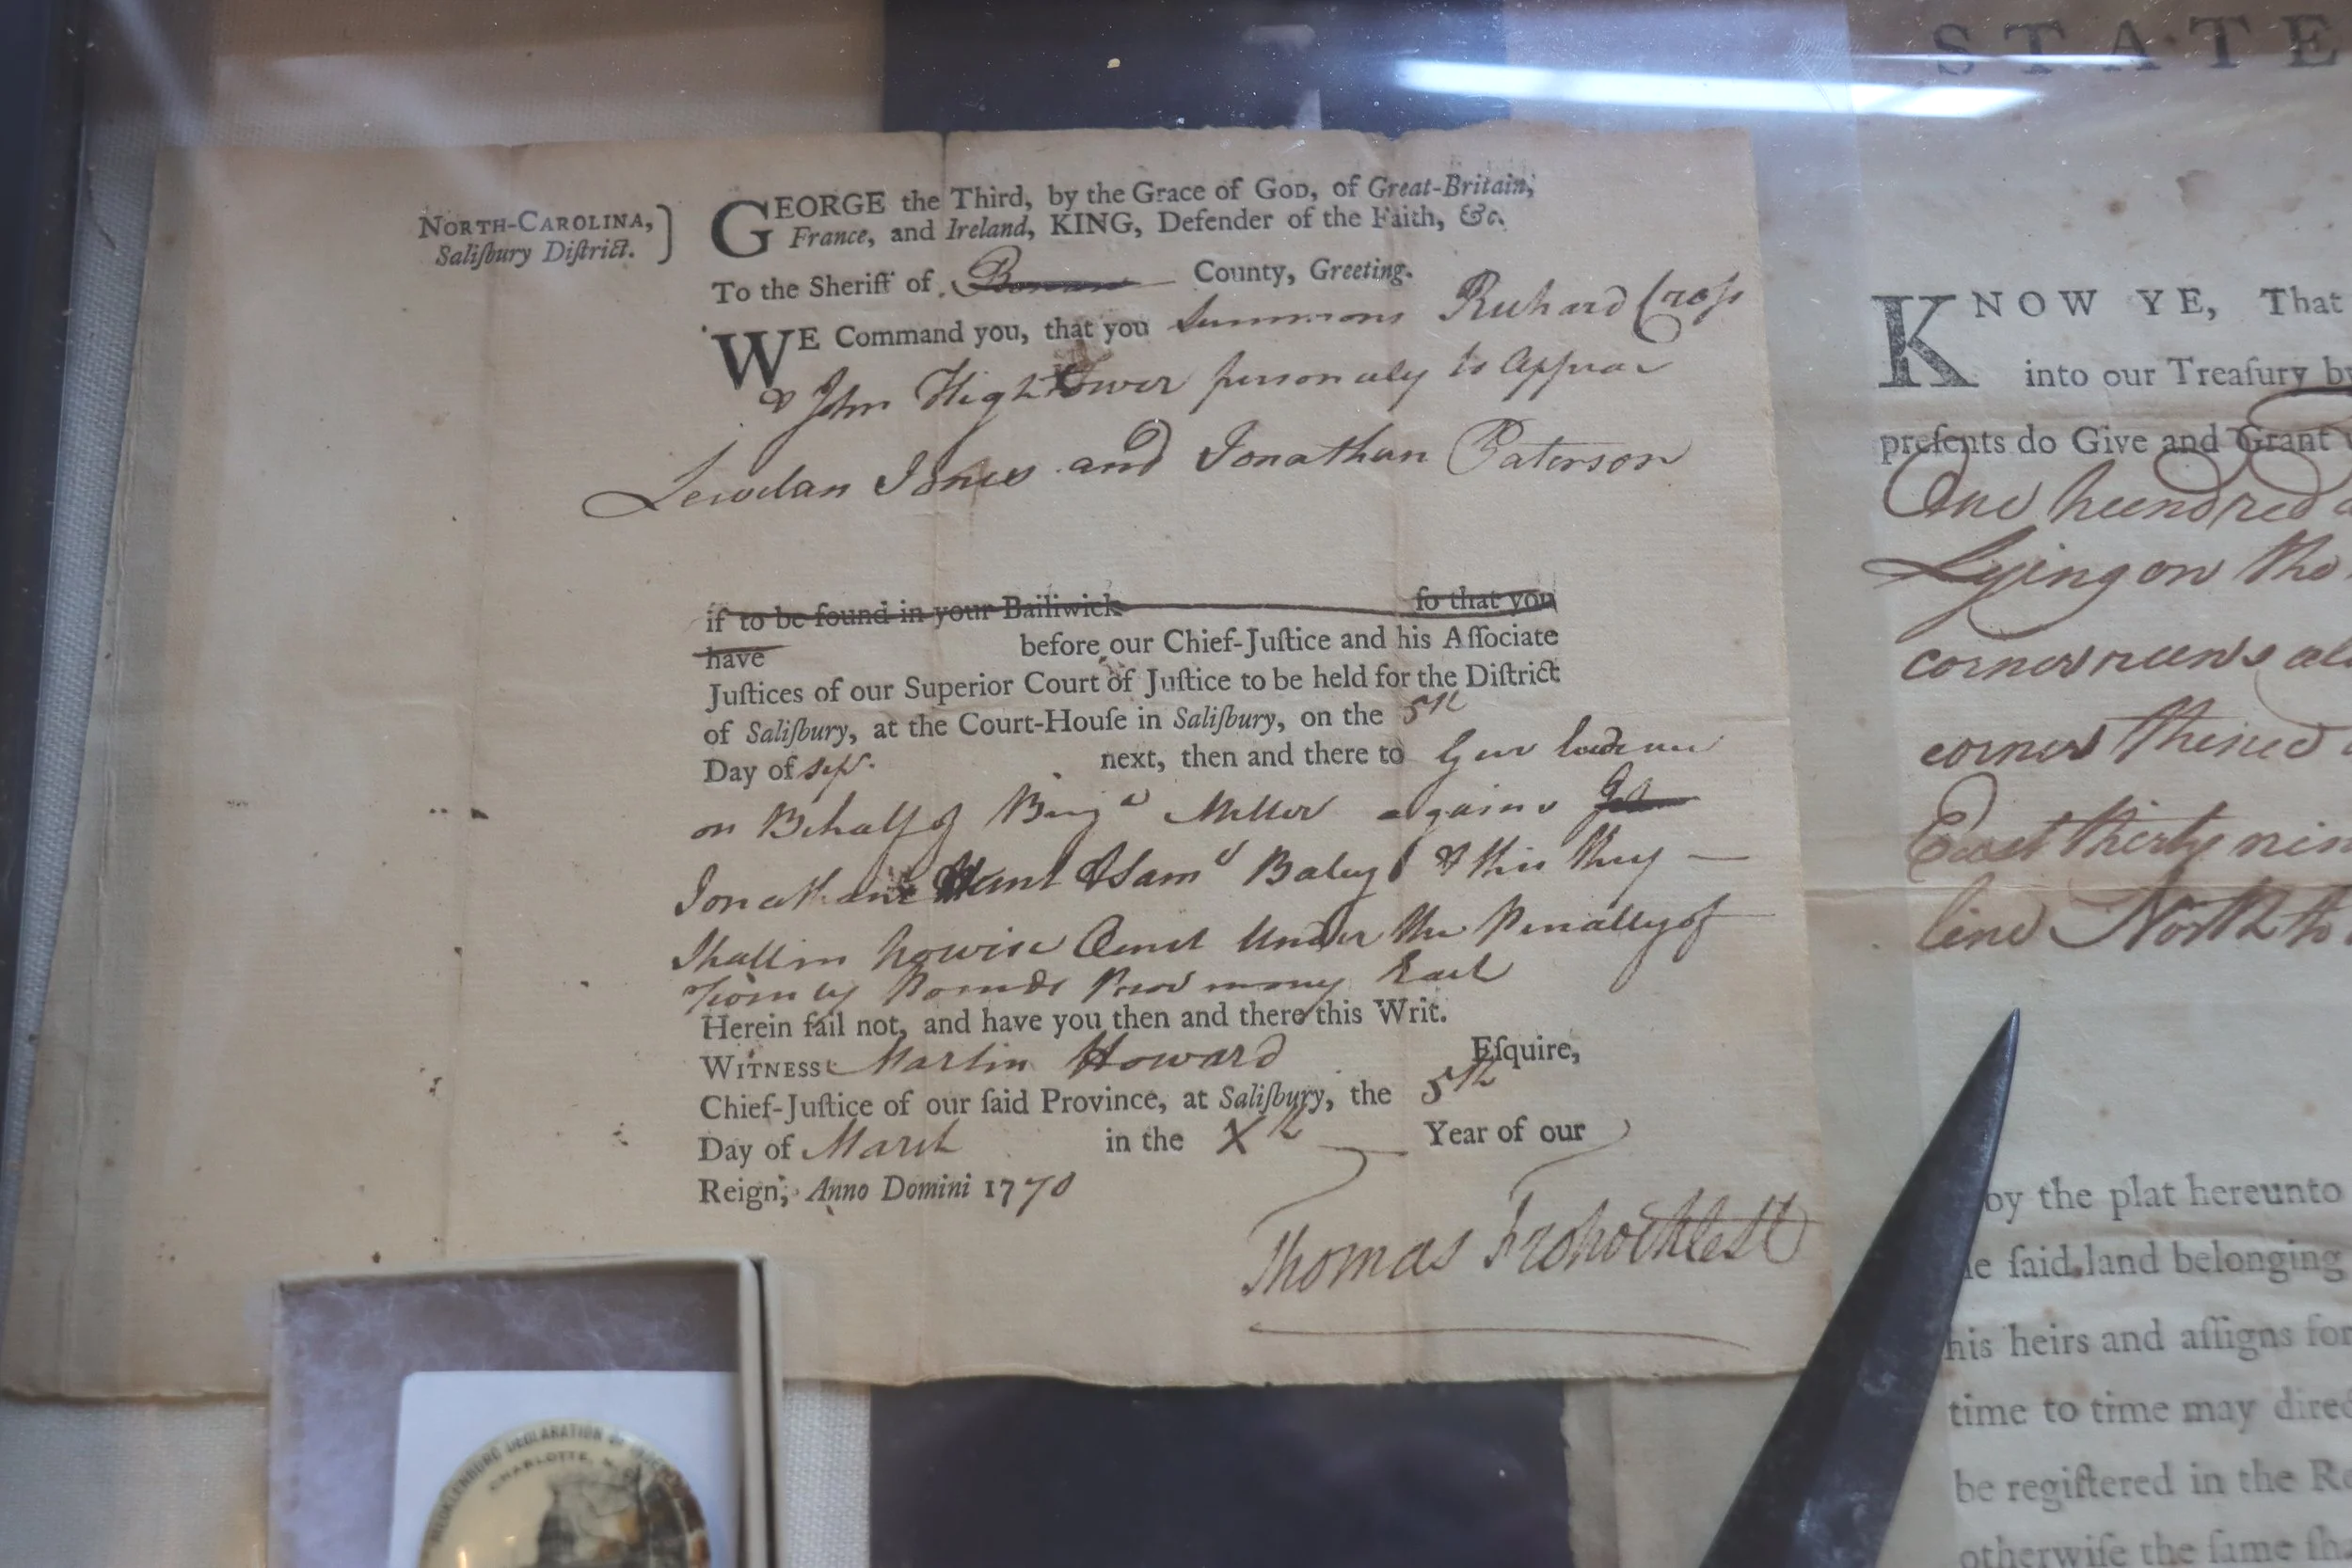 NORTH-CAROLINA,
Saliſbury Diſtrict.
GEORGE the Third, by the Grace of GOD, of Great-Britain,
France, and Ireland, KING, Defender of the Faith, &c.
To the Sheriff of County, Greeting.
WE Command you, that you Summons Richard Croſs
& John Hightower personaly to Appear
Lewelan Jones and Jonathan Paterson
if to be found in your Bailiwick ſo that you
have before our Chief-Juſtice and his Aſſociate
Juſtices of our Superior Court of Juſtice to be held for the Diſtrict
of Saliſbury, at the Court-Houſe in Saliſbury, on the 5th
Day of Sepr. next, then and there to
on Behalf of Benja Miller
Jonathan Hunt & Saml & this they
Shall in nowise Omit Under the Penalty of
Pounds Proc money Each
Herein fail not, and have you then and there this Writ.
WITNESS Martin Howard Eſquire,
Chief-Juſtice of our ſaid Province, at Saliſbury, the 5th
Day of March in the Xth Year of our
Reign, Anno Domini 1770
Thomas
STATE
KNOW YE, That
into our Treaſury by
preſents do Give and Grant
One hundred
Lying on the
corner runs
corner thence
East thirty nin
line North to
by the plat hereunto
ſaid land belonging
his heirs and aſſigns for
time to time may direc
be regiſtered in the Re
otherwiſe the ſame ſh
MECKLENBURG DECLARATION OF
CHARLOTTE, N.C.